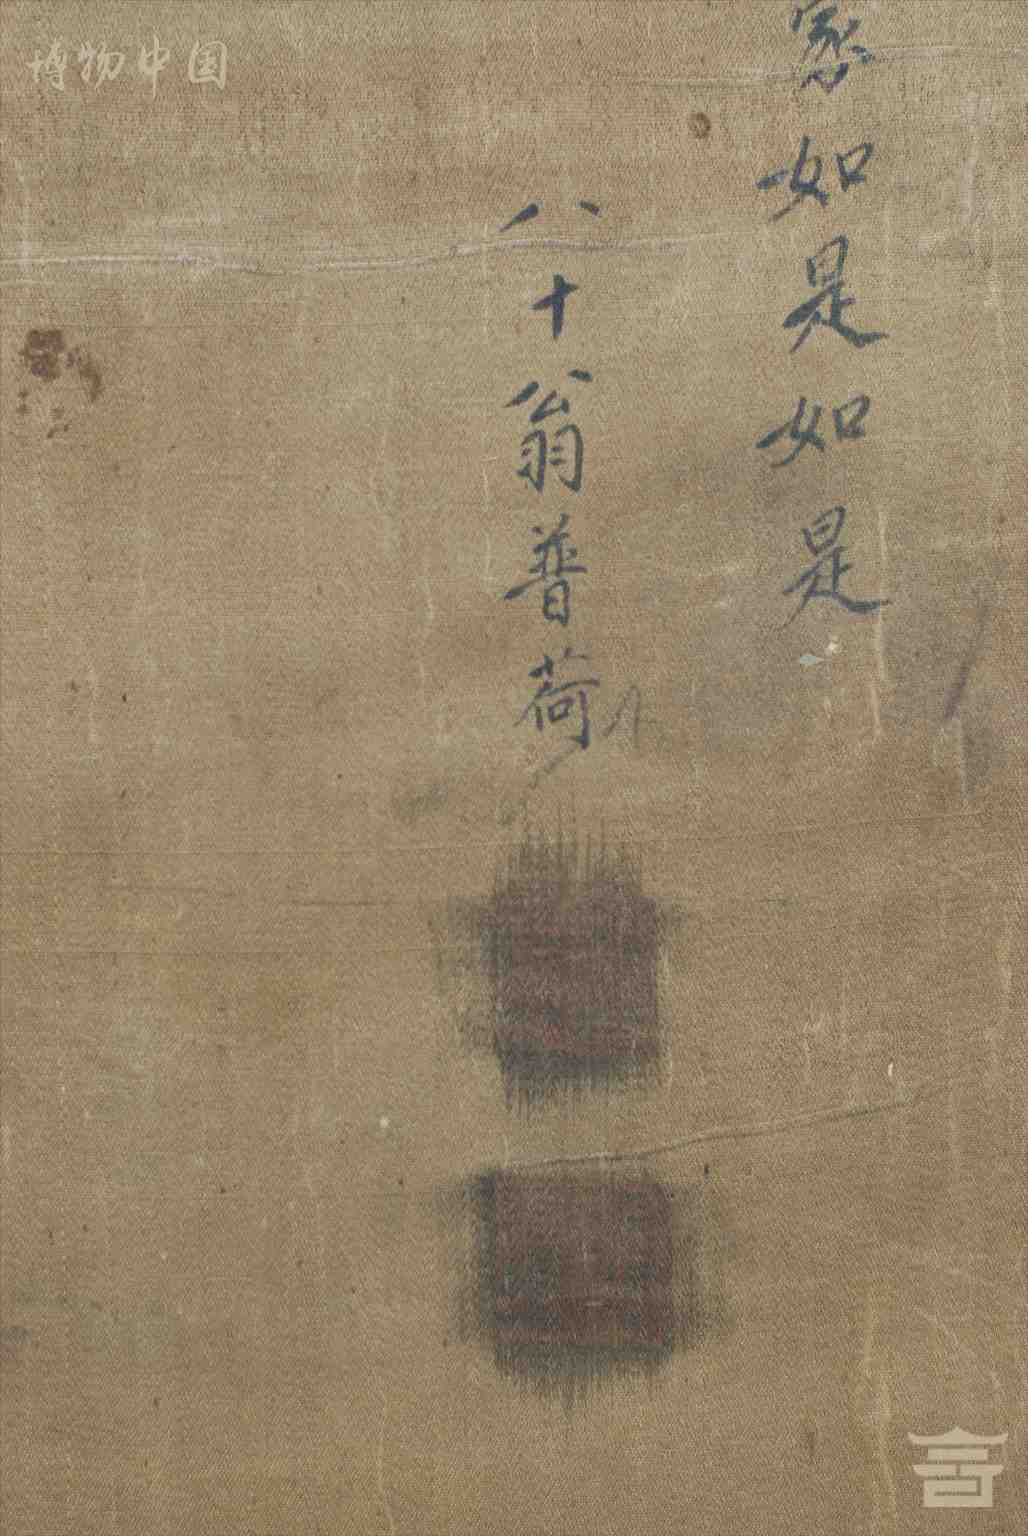 博物中国
家如是如是
八十翁普荷